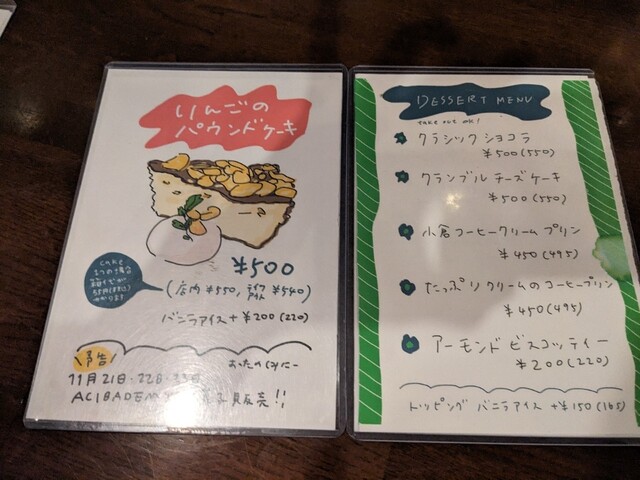 りんごの
パウンドケーキ
¥500
(店内 ¥550, テイクアウト ¥540)
バニラアイス +¥200(220)
cake
かかります
予告
11月21日・22日・23日
ACIBADEM
販売!!
DESSERT MENU
take out OK!
クラシック ショコラ
¥500(550)
クランブル チーズケーキ
¥500(550)
小倉コーヒークリーム プリン
¥450(495)
たっぷりクリームのコーヒープリン
¥450(495)
アーモンド ビスコッティー
¥200(220)
トッピング バニラアイス +¥150(165)